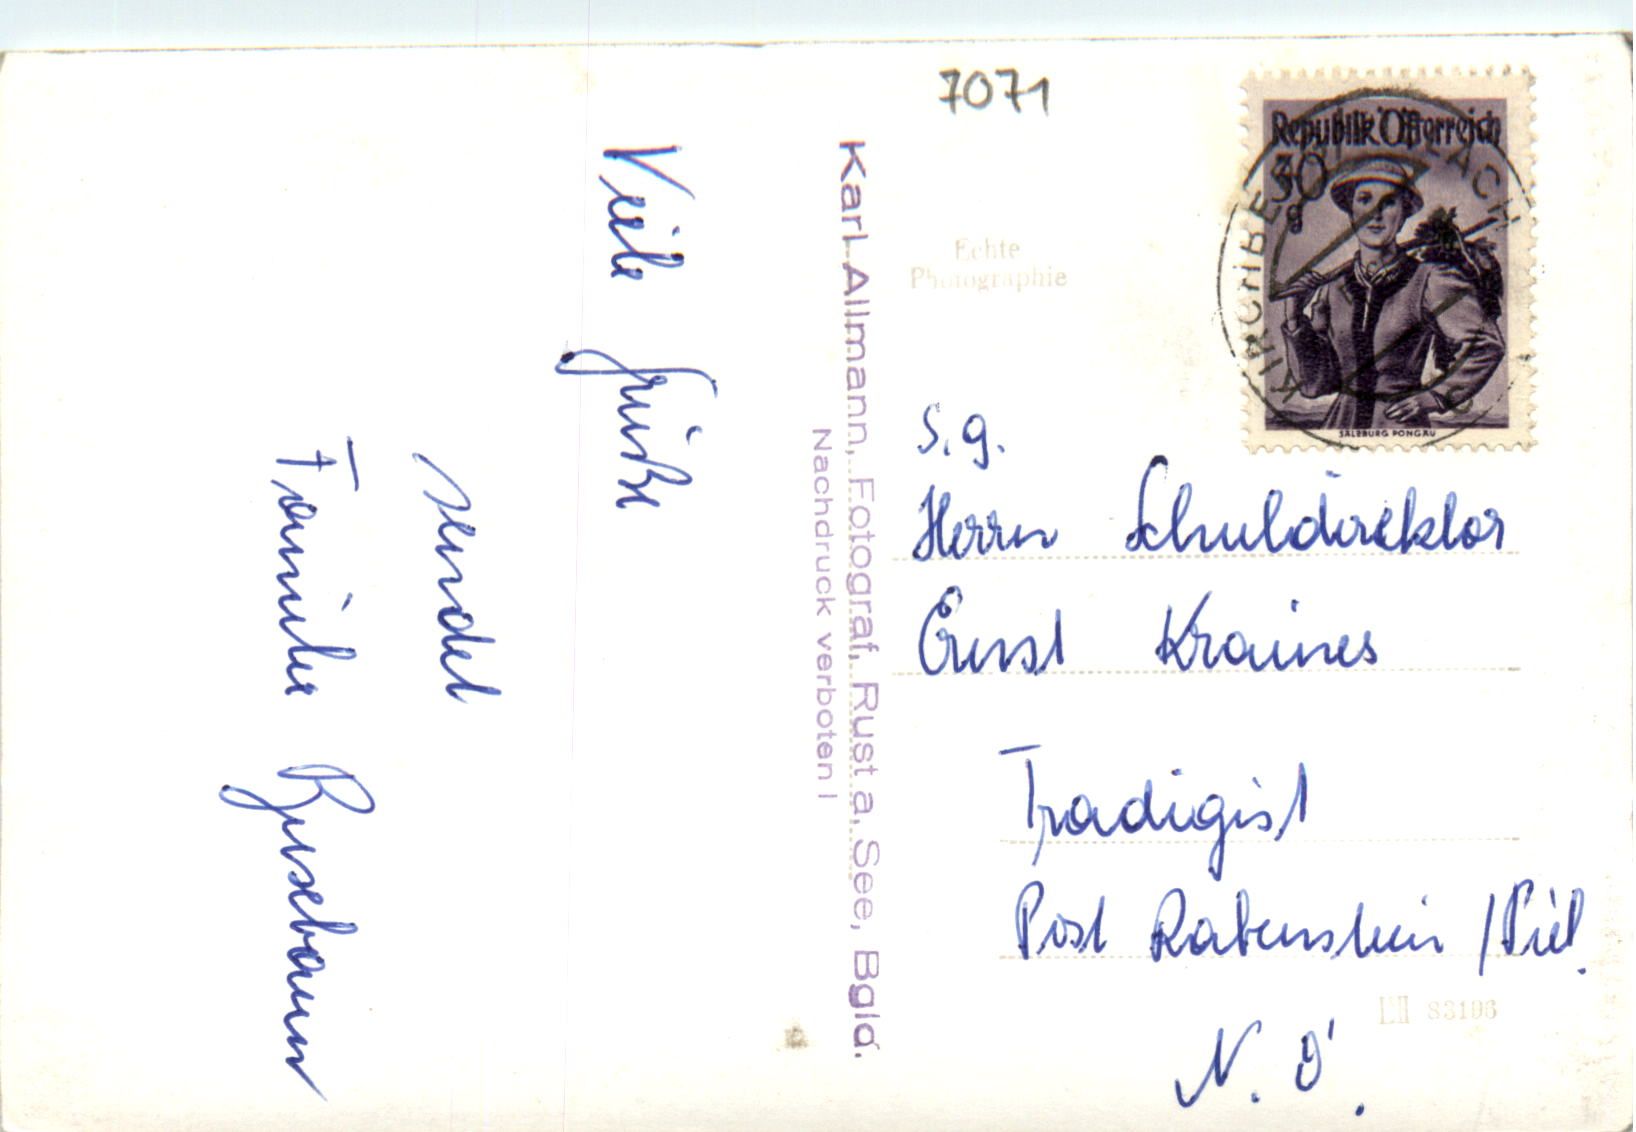 7071
Republik Österreich
30
g
SALZBURG PONGAU
Viele Grüße
sendet
Familie
Karl Allmann, Fotograf, Rust a. See, Bgld.
Nachdruck verboten !
Echte
Photographie
S. g.
Herrn Schuldirektor
Ernst Kraines
Tradigist
Post Rabenstein / Piel.
N. Ö.
83196